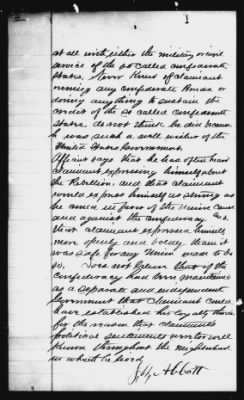 at all with either the military or civil
service of the so called confederate
States. Never knew of claimant
owning any confederate Bonds or
doing anything to sustain the
credit of the so called Confederate
States. does not think he did because
he was such a well wisher of the
United States Government.
Affiant says that he has often heard
claimant expressing himself about
the Rebellion and that claimant
would express himself as strong as
he could in favor of the Union Cause
and against the confederacy. and
that claimant expressed himself
more openly and boldly than it
was safe for any Union man to do
so. Does not believe that if the
confederacy had been maintained
as a separate and independent
Government that claimant could
have established his loyalty there
for the reason that claimants
political sentiments were too well
known throughout the neighborhood
in which he lived.
Abbott